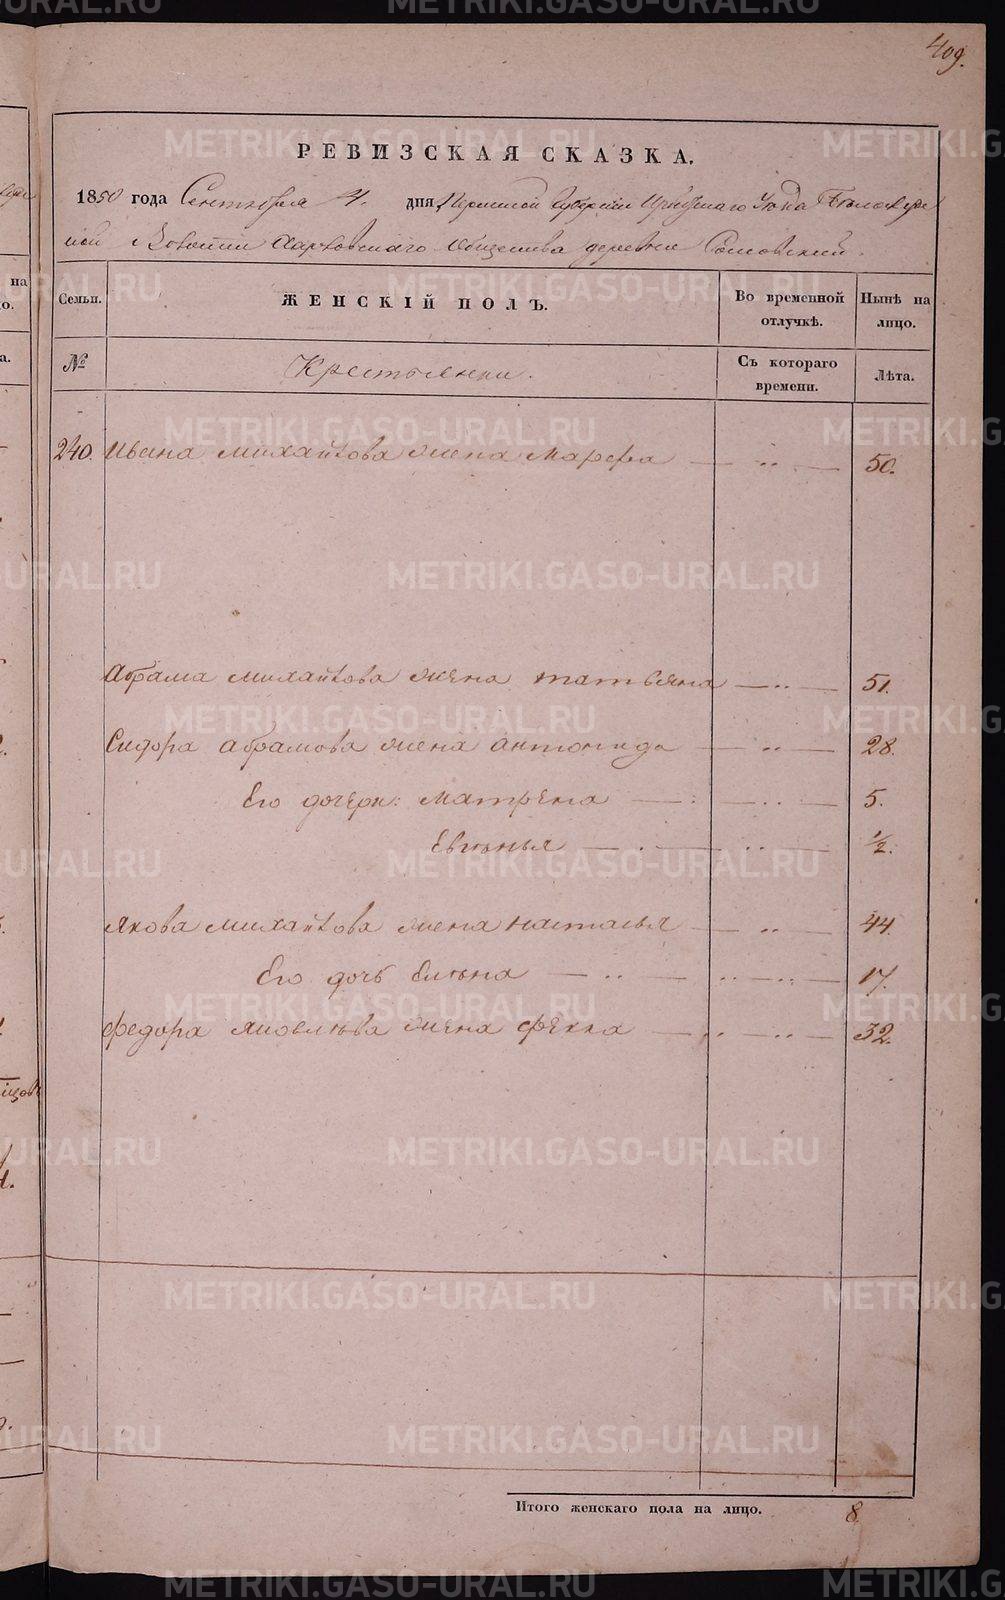 409.
РЕВИЗСКАЯ СКАЗКА.
1850 года Сентября 4. дня, Пермской Губернии Ирбитскаго Уѣзда Бѣлослуд
ской Волости Харловскаго Общества деревни
Семьи. ЖЕНСКІЙ ПОЛЪ. Во временной отлучкѣ. Нынѣ на лицо.
№ Крестьянки. Съ котораго времени. Лѣта.
240. Ивана Михайлова жена Марфа — „ — 50.
Абрама Михайлова жена Татьяна — „ — 51.
Сидора Абрамова жена Антонида — „ — 28.
Его дочери: Матрена — „ — 5.
Евгенья — „ — 1/2.
Якова Михайлова жена Наталья — „ — 44.
Его дочь Елена — „ — 17.
Федора Яковлева жена Фекла — „ — 32.
Итого женскаго пола на лицо. 8.
METRIKI.GASO-URAL.RU